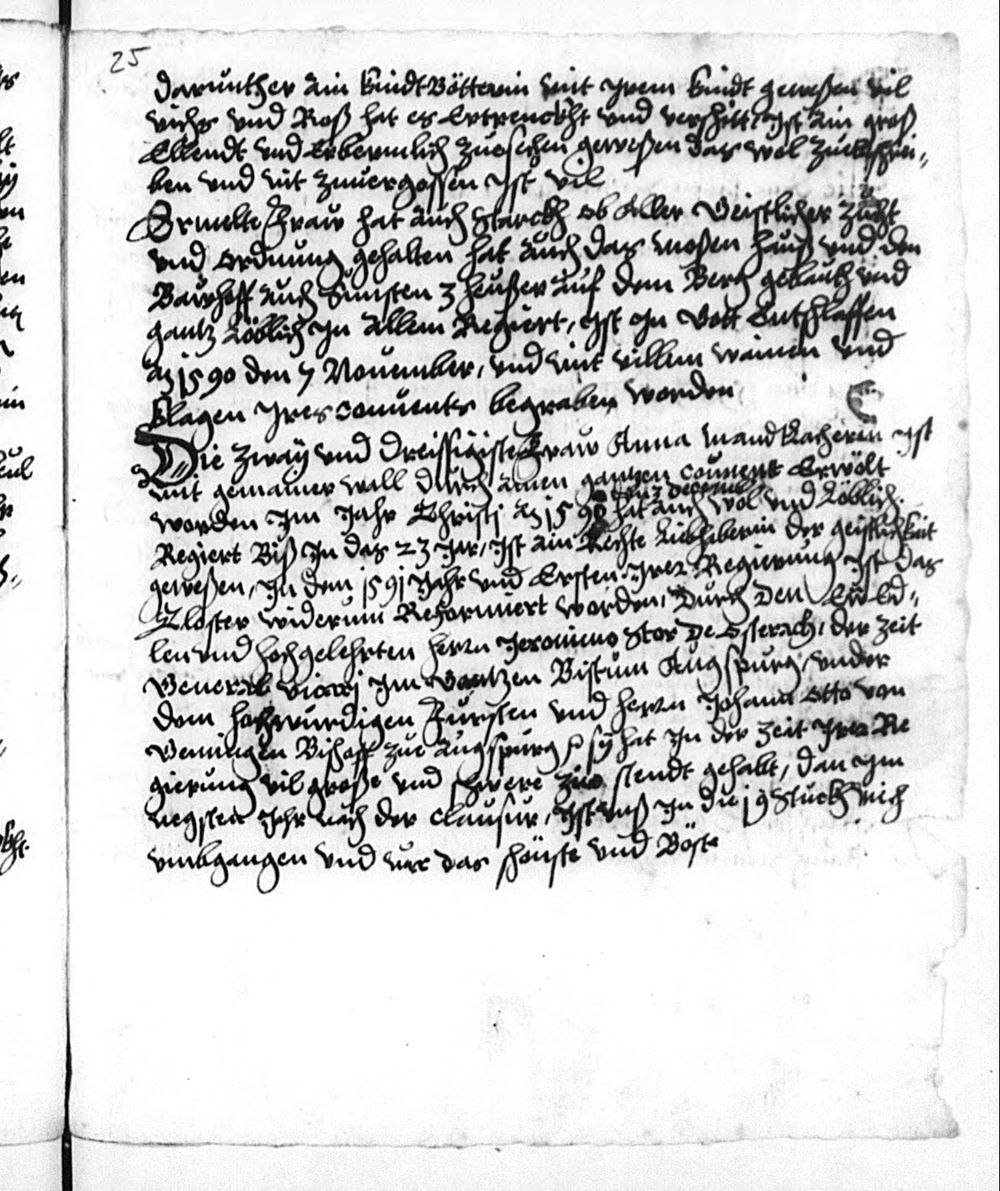 25
darunther ain kindtBötterin mit Jrem kindt geweßen vil
vichs vnd Roß hat es Ertrenckht vnd verschitt Jst ain groß
Ellendt vnd Erbermlich zuesechen geweßen das wol zue schrei=
ben vnd nit zuuergessen Jst vil
Ermelte Fraw hat auch starckh ob Aller Geistlicher zucht
vnd ordnung gehalten hat auch das hauß vnd den
Baurhoff auch Sunsten 3 heußer auf dem Berg gebauth vnd
gantz Löblich Jn Allem Regiert, Jst Jn Gott Entschlaffen
Aº 1590 den 7 Nouember, vnd mit villem wainen vnd
klagen Jres Conuents begraben worden
Die Zway vnd dreissigiste Fraw Anna Jst
mit gemainer wall durch ainen gantzen Conuent Erwölt
worden Jm Jahr Christi Aº 1590 hat auch wol vnd Löblich
Regiert Biß Jn das 23 Jar, Jst ain Rechte Liebhaberin der geistlichkeit
geweßen, Jn dem 1591 Jahr vnd Ersten Jrer Regierung Jst das
Closter widerum Reformiert worden, Durch Den Ed=
len vnd hochgelehrten herrn Jeronimo Stor De Osterach, der Zeit
General Vicarj Jm Gantzen Bistum Augspurg, vnder
dem hochwürdigen Fürsten vnd herrn Johann Otto von
Gemingen Bischoff zue Augspurg sy hat Jn der Zeit Jrer Re
gierung vil große vnd schwere Zue stendt gehabt, dan Jm
negsten Jahr nach der Clausur, Jst vnß Jn die 19 Stuckh vich
vmbgangen vnd nur das schönste vnd Böste